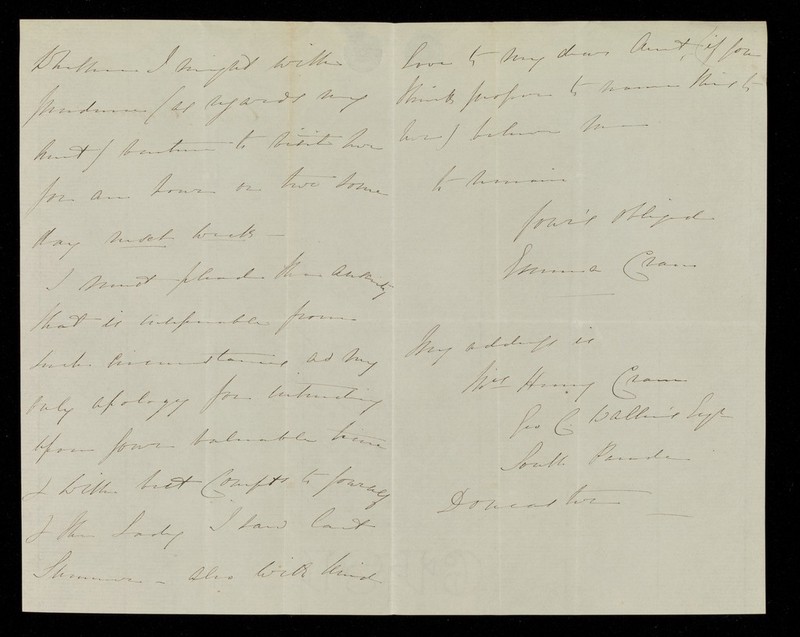 Whether I might with
prudence (as regards my
Aunt) venture to visit her
for an hour or two some
day next week —
I must plead the anxiety
that is inseparable from
such circumstances as my
only apology for intruding
upon your valuable time
& with best Compts to yourself
& the Lady I saw last
Summer — also with kind
love to my dear Aunt, (if you
think proper to name this to
her) believe me
to remain
yours obliged
Emma Crane
My address is
Mrs Henry Crane
Geo C. Esqr
South Parade
Doncaster —